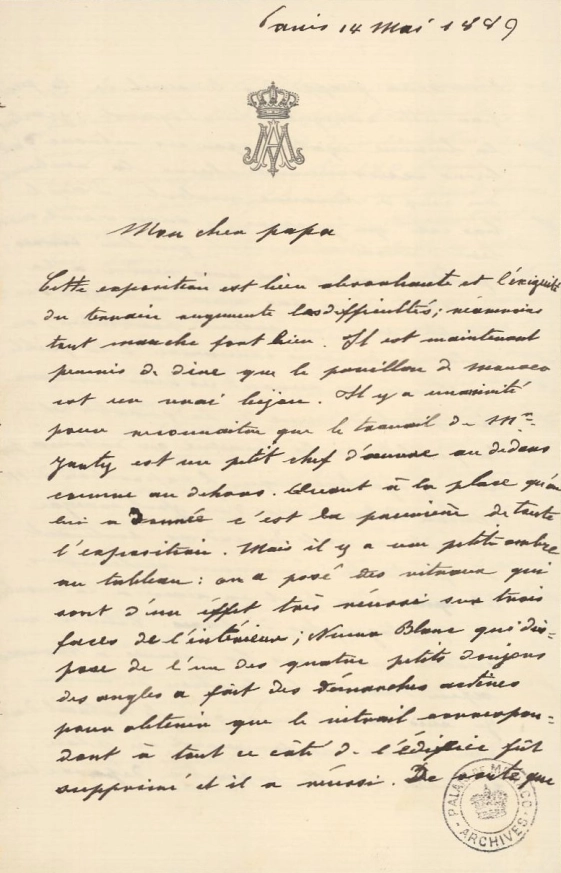 Paris 14 Mai 1889
Mon cher papa
Cette exposition est bien absorbante et l'exiguité
du terrain augmente les difficultés; néanmoins
tout marche fort bien. Il est maintenant
permis de dire que le pavillon de Monaco
est un vrai bijou. Il y a unanimité
pour reconnaître que le travail de Mr.
Janty est un petit chef d'œuvre au dedans
comme au dehors. Quant à la place qu'on
lui a donnée c'est la première de toute
l'exposition. Mais il y a une petite ombre
au tableau: on a posé des vitraux qui
sont d'un éffet très réussi sur trois
faces de l'intérieur; Blanc qui dis-
pose de l'un des quatre petits donjons
des angles a fait des démarches actives
pour obtenir que le vitrail correspon-
dant à tout ce côté de l'édifice fût
supprimé et il a réussi. De sorte que
PALAIS DE MONACO
ARCHIVES